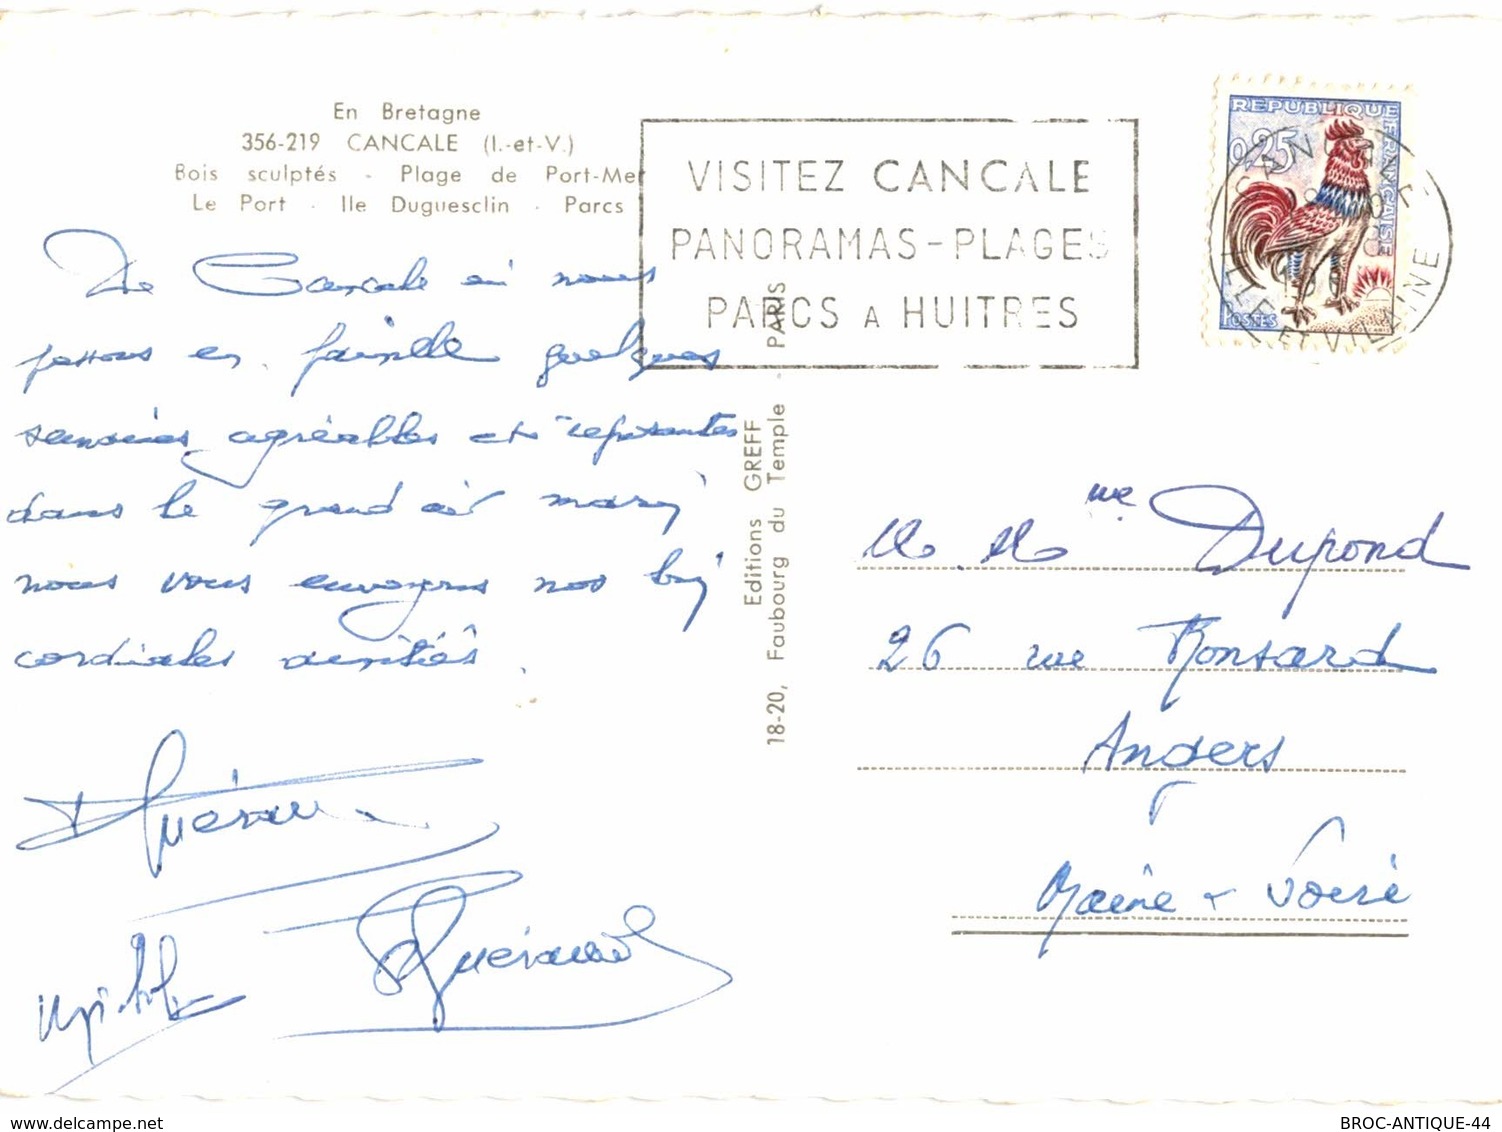 En Bretagne
356-219 CANCALE (I.-et-V.)
Bois sculptés - Plage de Port-Mer
Le Port - Ile Duguesclin - Parcs
VISITEZ CANCALE
PANORAMAS-PLAGES
PARCS A HUITRES
REPUBLIQUE FRANCAISE
0,25
POSTES
CANCALE
ILLE ET VILAINE
De Cancale où nous
passons en famille quelques
semaines agréables et reposantes
dans le grand air marin
nous vous envoyons nos
cordiales amitiés.
Editions GREFF
18-20, Faubourg du Temple - PARIS
M. Mme Dupond
26 rue Ronsard
Angers
Maine & Loire
www.delcampe.net
BROC-ANTIQUE-44